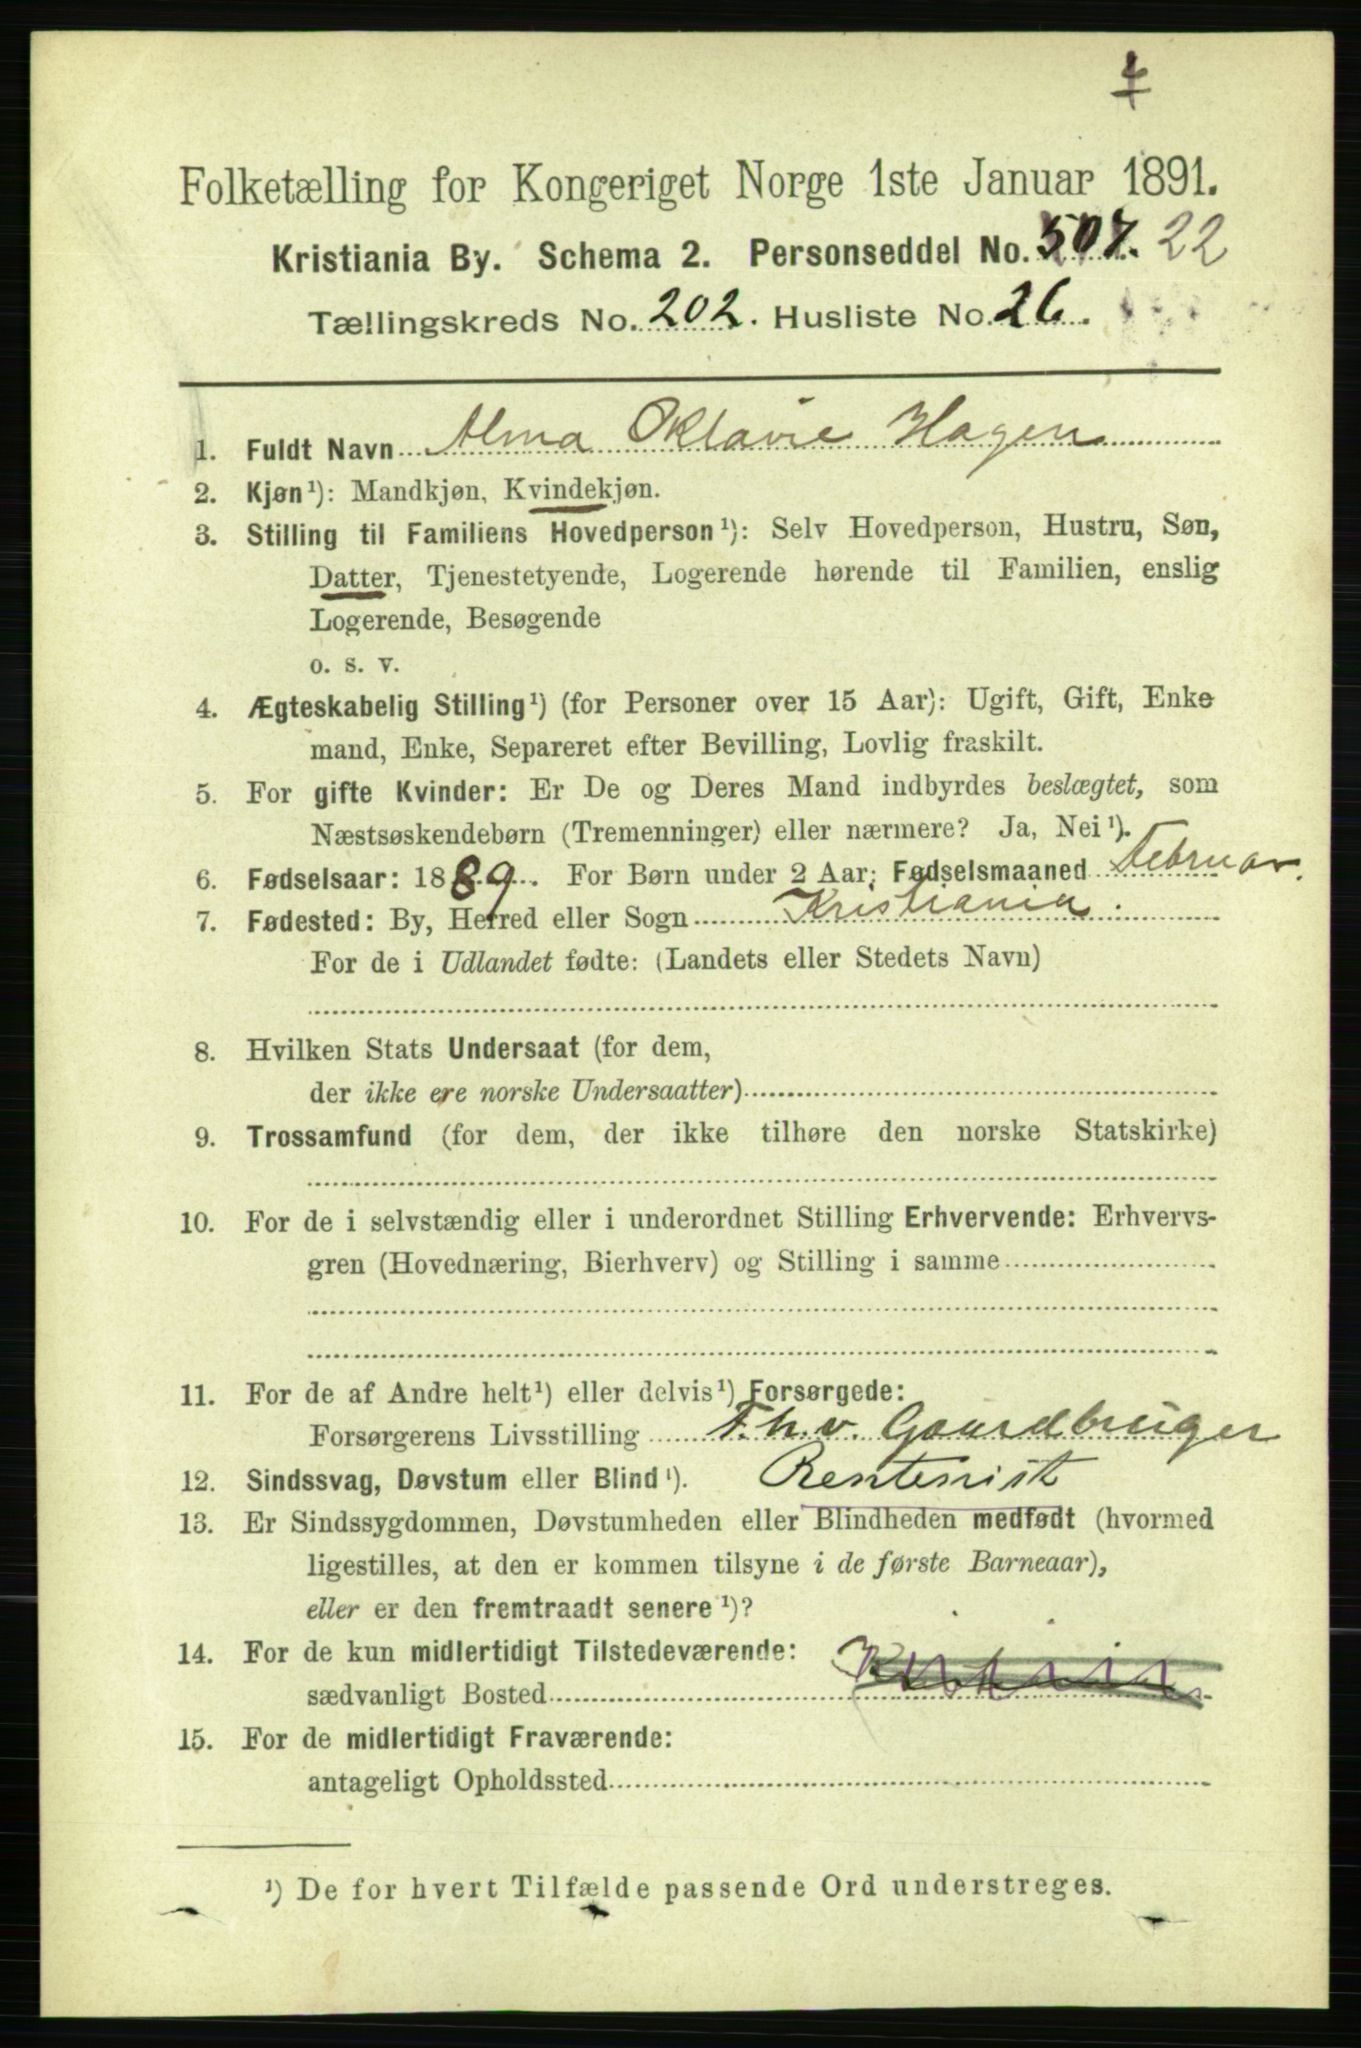 Folketælling for Kongeriget Norge 1ste Januar 1891.
Kristiania By. Schema 2. Personseddel No. 507. 22
Tællingskreds No. 202. Husliste No. 26.
1. Fuldt Navn Alma Oktavie Hagen
2. Kjøn¹): Mandkjøn, Kvindekjøn.
3. Stilling til Familiens Hovedperson¹): Selv Hovedperson, Hustru, Søn,
Datter, Tjenestetyende, Logerende hørende til Familien, enslig
Logerende, Besøgende
o. s. v.
4. Ægteskabelig Stilling¹) (for Personer over 15 Aar): Ugift, Gift, Enke
mand, Enke, Separeret efter Bevilling, Lovlig fraskilt.
5. For gifte Kvinder: Er De og Deres Mand indbyrdes beslægtet, som
Næstsøskendebørn (Tremenninger) eller nærmere? Ja, Nei¹).
6. Fødselsaar: 1889. For Børn under 2 Aar: Fødselsmaaned Februar.
7. Fødested: By, Herred eller Sogn Kristiania.
For de i Udlandet fødte: (Landets eller Stedets Navn)
8. Hvilken Stats Undersaat (for dem,
der ikke ere norske Undersaatter)
9. Trossamfund (for dem, der ikke tilhøre den norske Statskirke)
10. For de i selvstændig eller i underordnet Stilling Erhvervende: Erhvervs-
gren (Hovednæring, Bierhverv) og Stilling i samme
11. For de af Andre helt¹) eller delvis¹) Forsørgede:
Forsørgerens Livsstilling F. h. v. Gaardbruger
12. Sindssvag, Døvstum eller Blind¹). Rentenist
13. Er Sindssygdommen, Døvstumheden eller Blindheden medfødt (hvormed
ligestilles, at den er kommen tilsyne i de første Barneaar),
eller er den fremtraadt senere¹)?
14. For de kun midlertidigt Tilstedeværende:
sædvanligt Bosted Kristiania
15. For de midlertidigt Fraværende:
antageligt Opholdssted
¹) De for hvert Tilfælde passende Ord understreges.